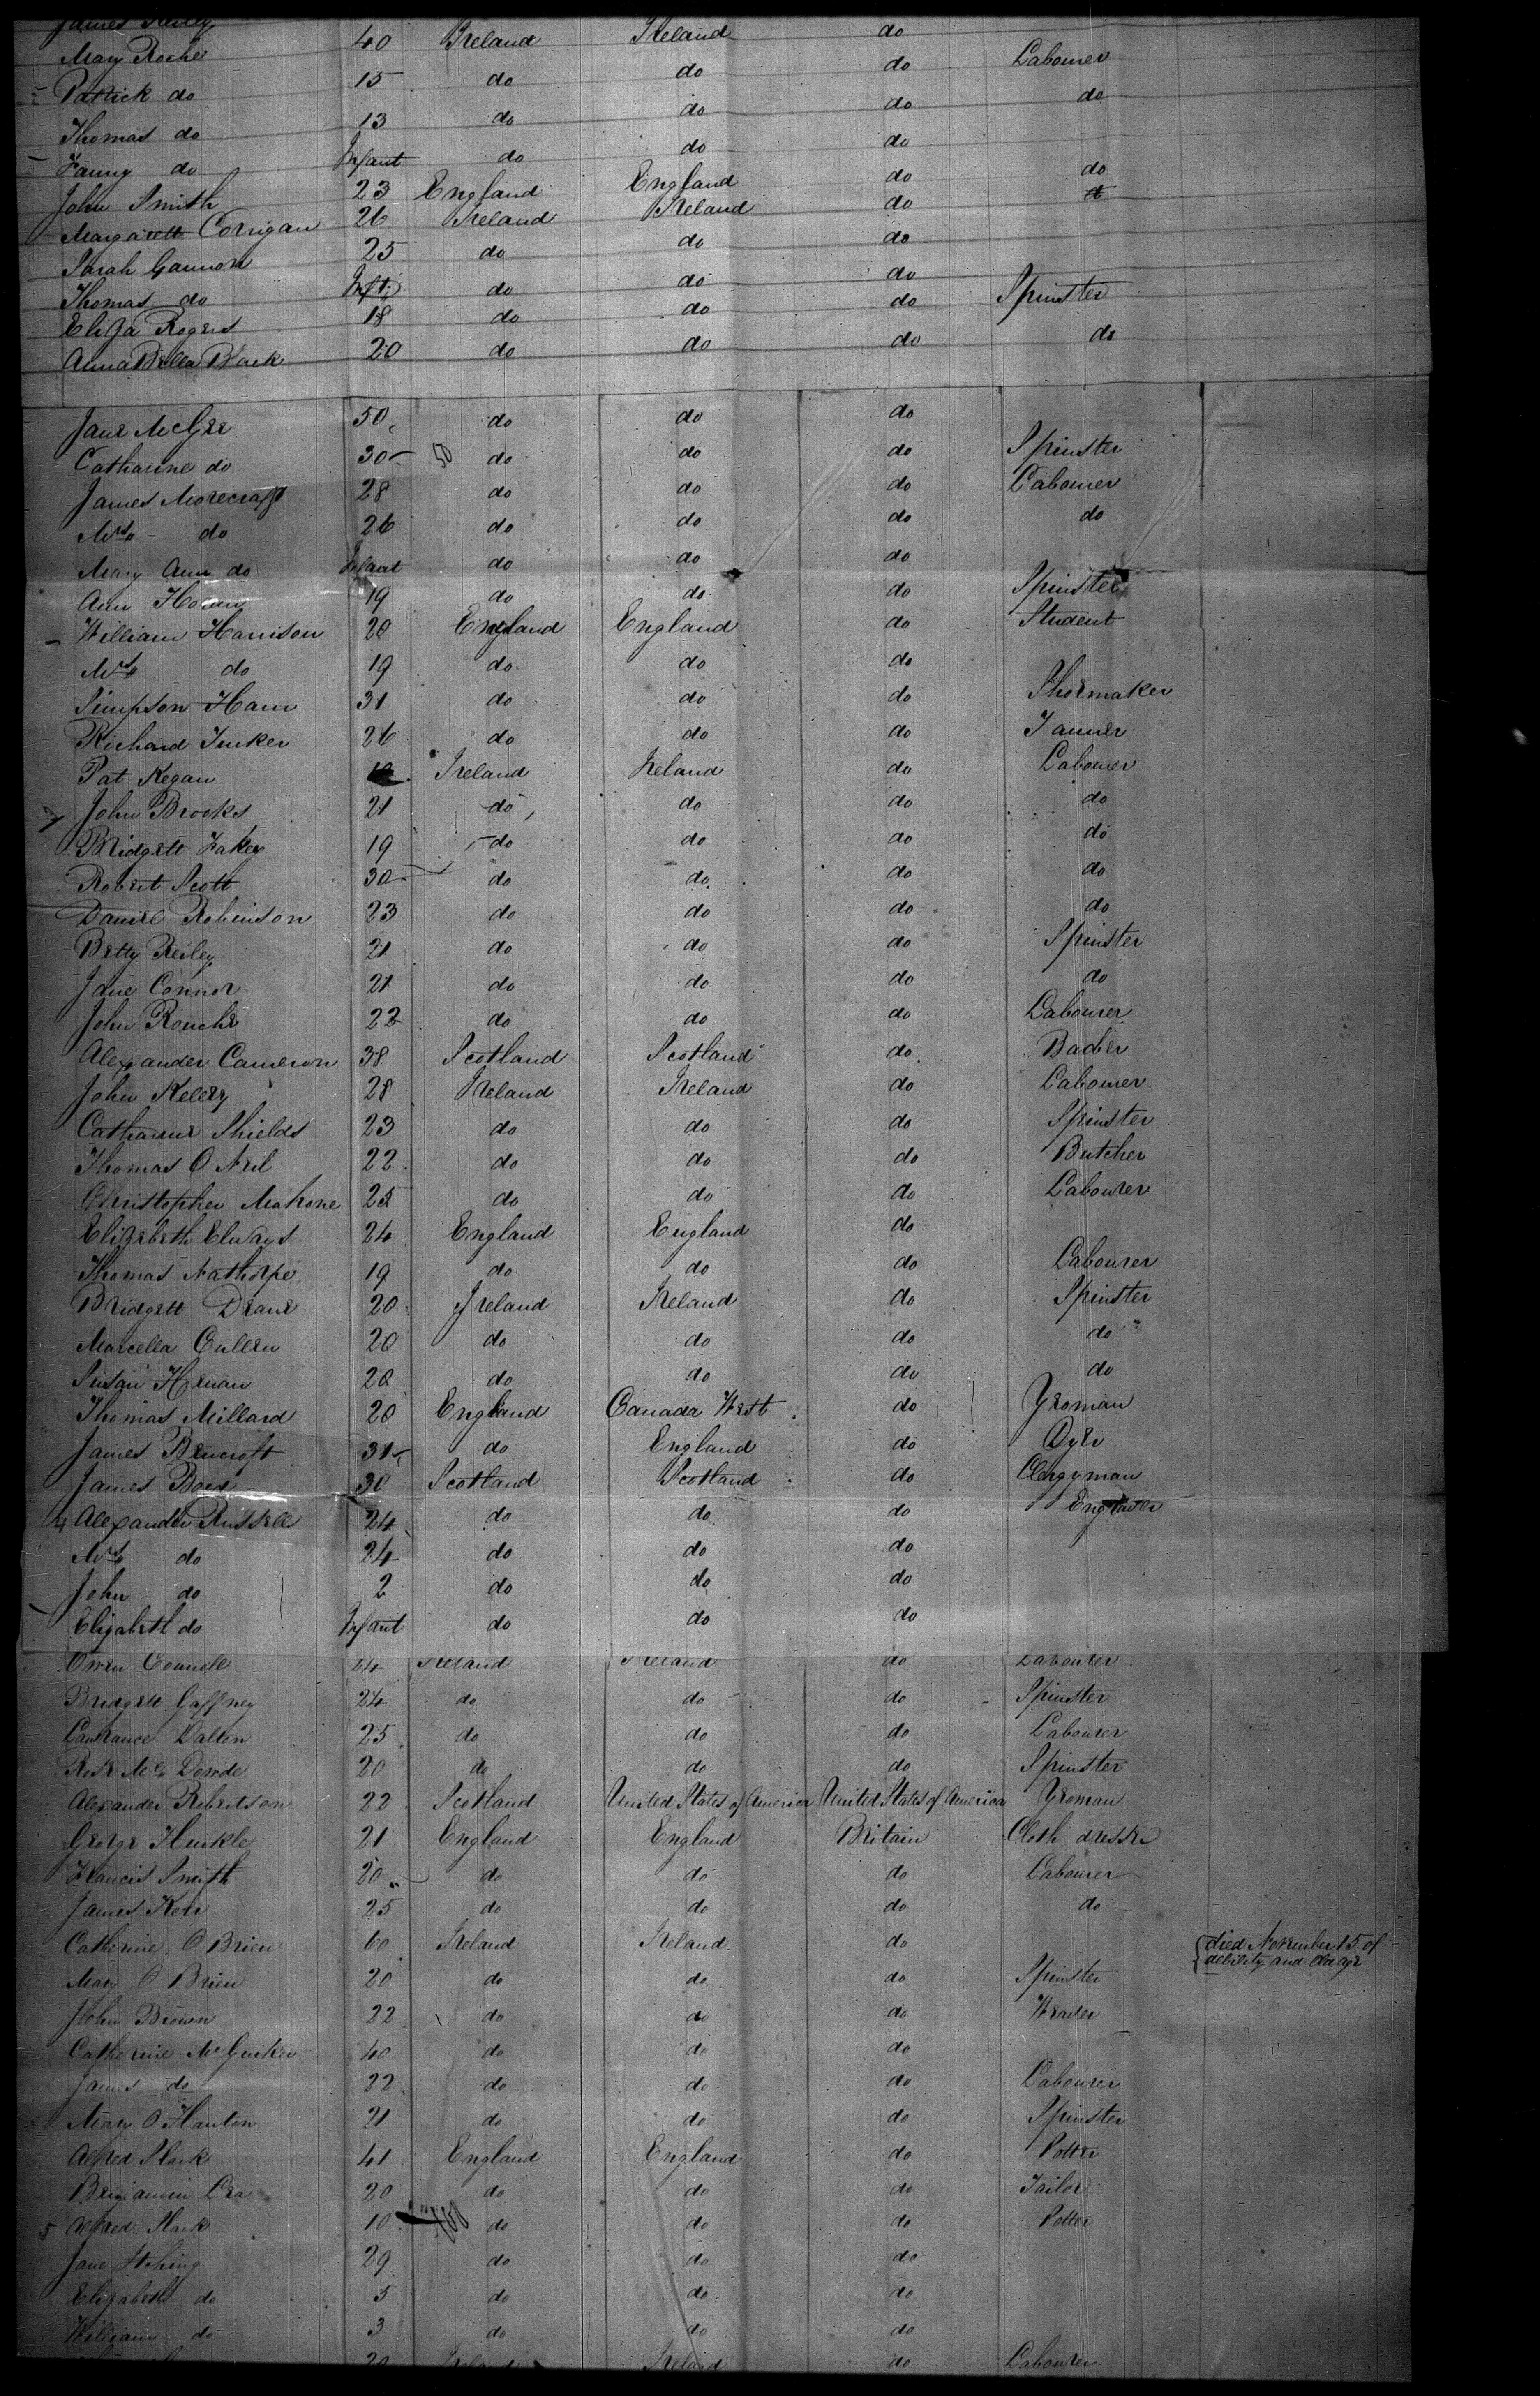 James Reiley
Mary Roche 40 Ireland Ireland do
Patrick do 15 do do do Labourer
Thomas do 13 do do do do
Fanny do Infant do do do
John Smith 23 England England do do
Margarett Corrigan 26 Ireland Ireland do
Sarah Gannon 25 do do do
Thomas do Inft do do do
Eliza Rogers 18 do do do Spinster
Anna Bella Black 20 do do do do
Jane McGee 50 do do do
Catharine do 30 50 do do do Spinster
James Morecraft 28 do do do Labourer
Mrs do 26 do do do do
Mary Ann do Infant do do do
Ann 19 do do do Spinster
William Harrison 20 England England do Student
Mrs do 19 do do do
Simpson Ham 31 do do do Shoemaker
Richard Tucker 26 do do do Tanner
Pat Kegan Ireland Ireland do Labourer
John Brooks 21 do do do do
Bridgett Fahey 19 do do do do
Robert Scott 30 do do do do
Daniel Robinson 23 do do do do
Betty Reiley 21 do do do Spinster
Jane Connor 21 do do do do
John Rouche 22 do do do Labourer
Alexander Cameron 38 Scotland Scotland do
John Kelery 28 Ireland Ireland do Labourer
Catharine Shields 23 do do do Spinster
Thomas O Neil 22 do do do Butcher
Christopher Mahone 25 do do do Labourer
Elizebeth Elways 24 England England do
Thomas Nathorpe 19 do do do Labourer
Bridgett Deane 20 Ireland Ireland do Spinster
Marcella Cullen 20 do do do do
Susan Henan 20 do do do do
Thomas Millard 20 England Canada West do Yeoman
James Bencroft 31 do England do Dyer
James Bows 30 Scotland Scotland do Clergyman
4 Alexander Russell 24 do do do Engraver
Mrs do 24 do do do
John do 2 do do do
Elizabeth do Infant do do do
Owen 24 Ireland Ireland do Labourer
Bridgett Gaffney 24 do do do Spinster
Lawrance Dalton 25 do do do Labourer
Rose Mc Dowde 20 do do do Spinster
Alexander Robertson 22 Scotland United States of America United States of America Yeoman
George Hinkle 21 England England Britain Cloth dresser
Francis Smith 20 do do do Labourer
James Kerr 25 do do do do
Catherine O Brien 60 Ireland Ireland do died November 15 of
debility and old age
Mary O Brien 20 do do do Spinster
John Brown 22 do do do Weaver
Catherine McGurken 40 do do do
James do 22 do do do Labourer
Mary O Hanlon 21 do do do Spinster
Alfred Slack 41 England England do Potter
Benjamin Lea 20 do do do Tailor
5 Alfred Slack 10 do do do Potter
Jane Itching 29 do do do
Elizabeth do 5 do do do
William do 3 do do do
20 Ireland Ireland do Labourer